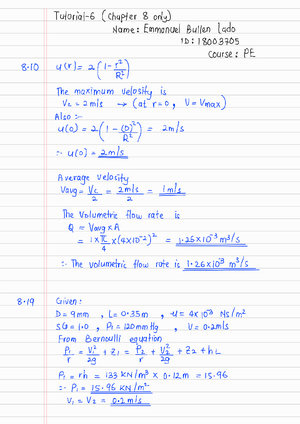 Tutorial-6 (Chapter 8 only)
Name: Emmanuel Bullen Lado
ID: 18003705
Course: PE
8.10 u(r) = 2(1 - r²/R²)
The maximum velosity is
Vc = 2m/s → (at r=0, U=Vmax)
Also :-
u(0) = 2(1 - (0)²/R²) = 2m/s
∴ u(0) = 2m/s
Average velosity
Vavg = Vc/2 = 2m/s/2 = 1m/s
The Volumetric flow rate is
Q = Vavg x A
= 1 x π/4 x (4x10⁻²)² = 1.25x10⁻³ m³/s
∴ The volumetric flow rate is 1.26x10⁻³ m³/s
8.19 Given:
D = 9mm , L = 0.35m , μ = 4x10⁻³ Ns/m²
SG = 1.0 , P₁ = 120mmHg , V = 0.2m/s
From Bernoulli equation
P₁/r = V₁²/2g + Z₁ = P₂/r + V₂²/2g + Z₂ + hL
P₁ = rh = 133 KN/m³ x 0.12m = 15.96
∴ P₁ = 15.96 KN/m²
V₁ = V₂ = 0.2m/s